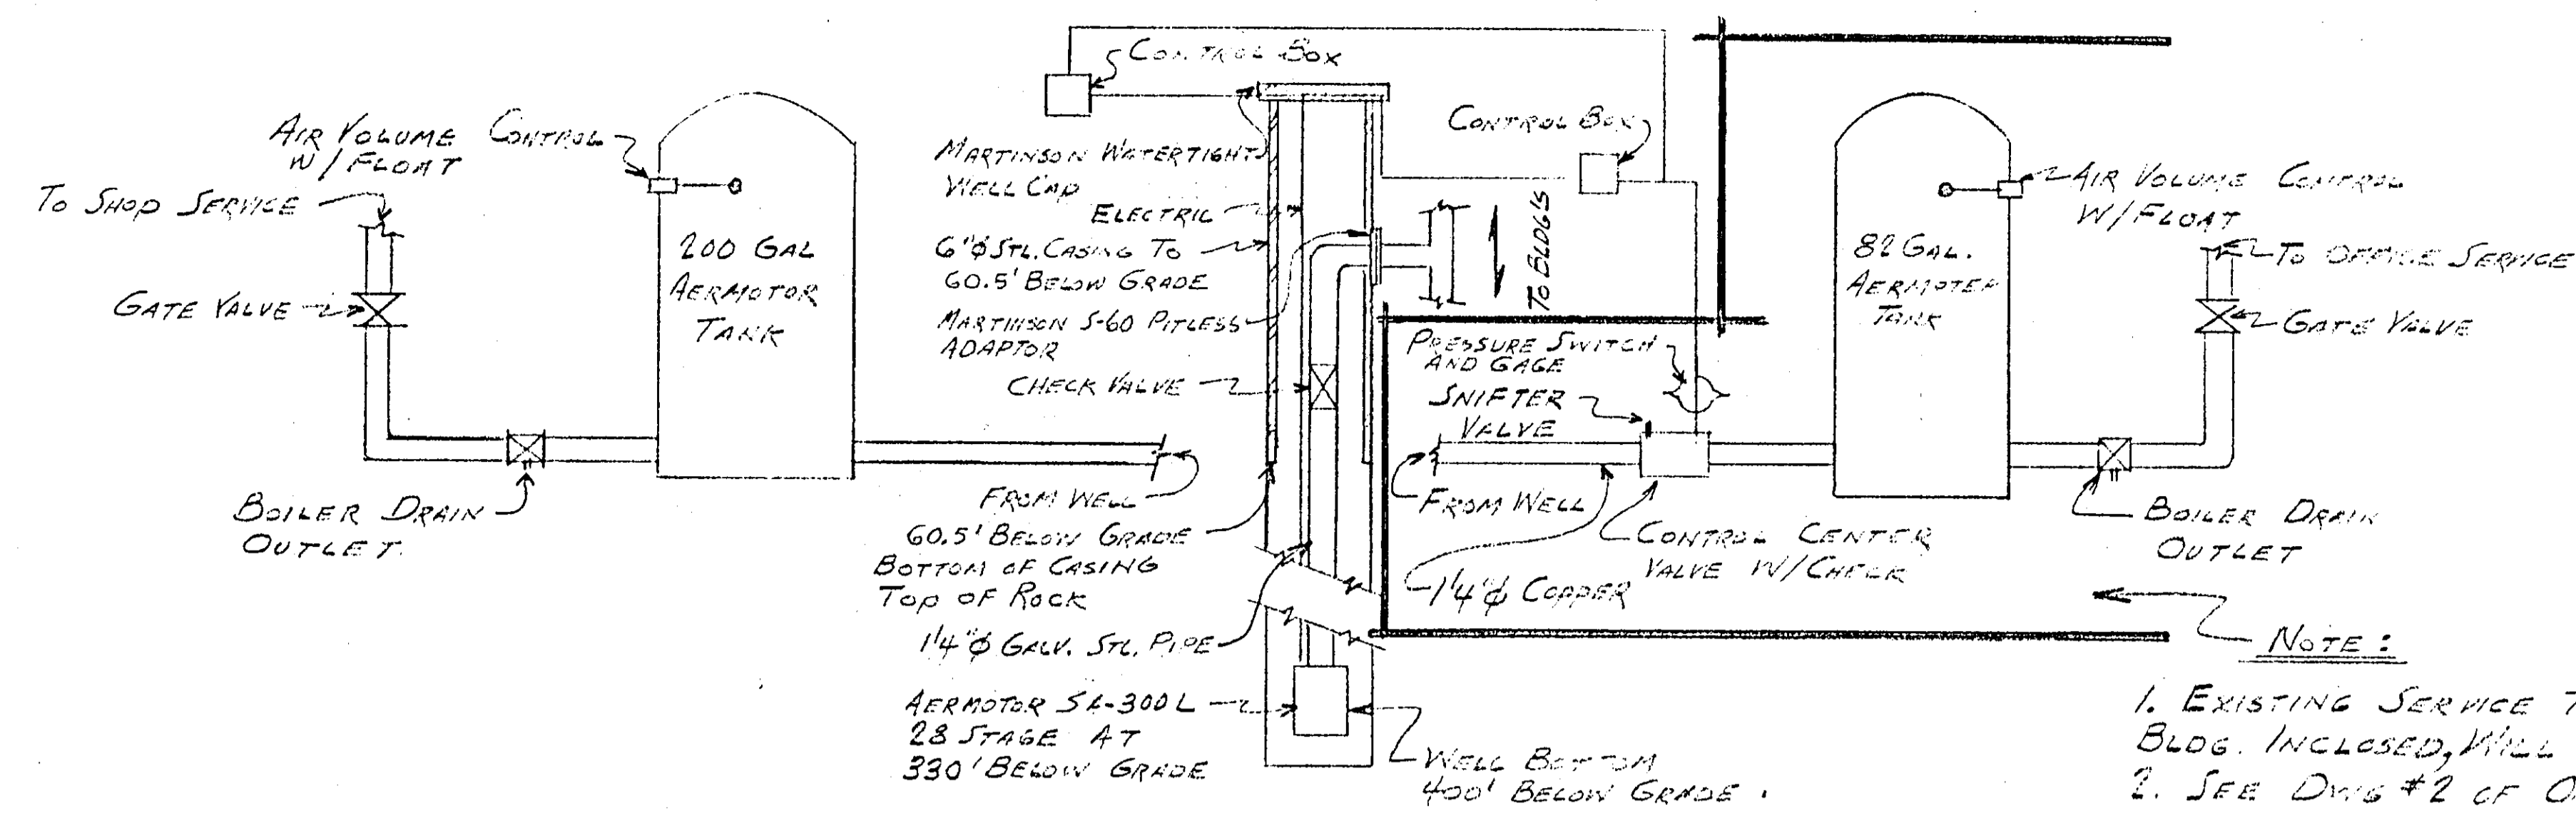 CONTROL BOX
AIR VOLUME CONTROL
W/FLOAT
TO SHOP SERVICE
GATE VALVE
200 GAL
AERMOTOR
TANK
BOILER DRAIN
OUTLET.
MARTINSON WATERTIGHT
WELL CAP
ELECTRIC
6"Ø STL. CASING TO
60.5' BELOW GRADE
MARTINSON S-60 PITLESS
ADAPTOR
CHECK VALVE
FROM WELL
60.5' BELOW GRADE
BOTTOM OF CASING
TOP OF ROCK
1¼"Ø GALV. STL. PIPE
AERMOTOR SA-300L
28 STAGE AT
330' BELOW GRADE
WELL BOTTOM
400' BELOW GRADE.
CONTROL BOX
TO BLDGS
PRESSURE SWITCH
AND GAGE
SNIFTER
VALVE
FROM WELL
CONTROL CENTER
VALVE W/CHECK
1¼"Ø COPPER
82 GAL.
AERMOTER
TANK
AIR VOLUME CONTROL
W/FLOAT
TO OFFICE SERVICE
GATE VALVE
BOILER DRAIN
OUTLET
NOTE:
1. EXISTING SERVICE
BLDG. INCLOSED, WILL
2. SEE DWG #2 OF